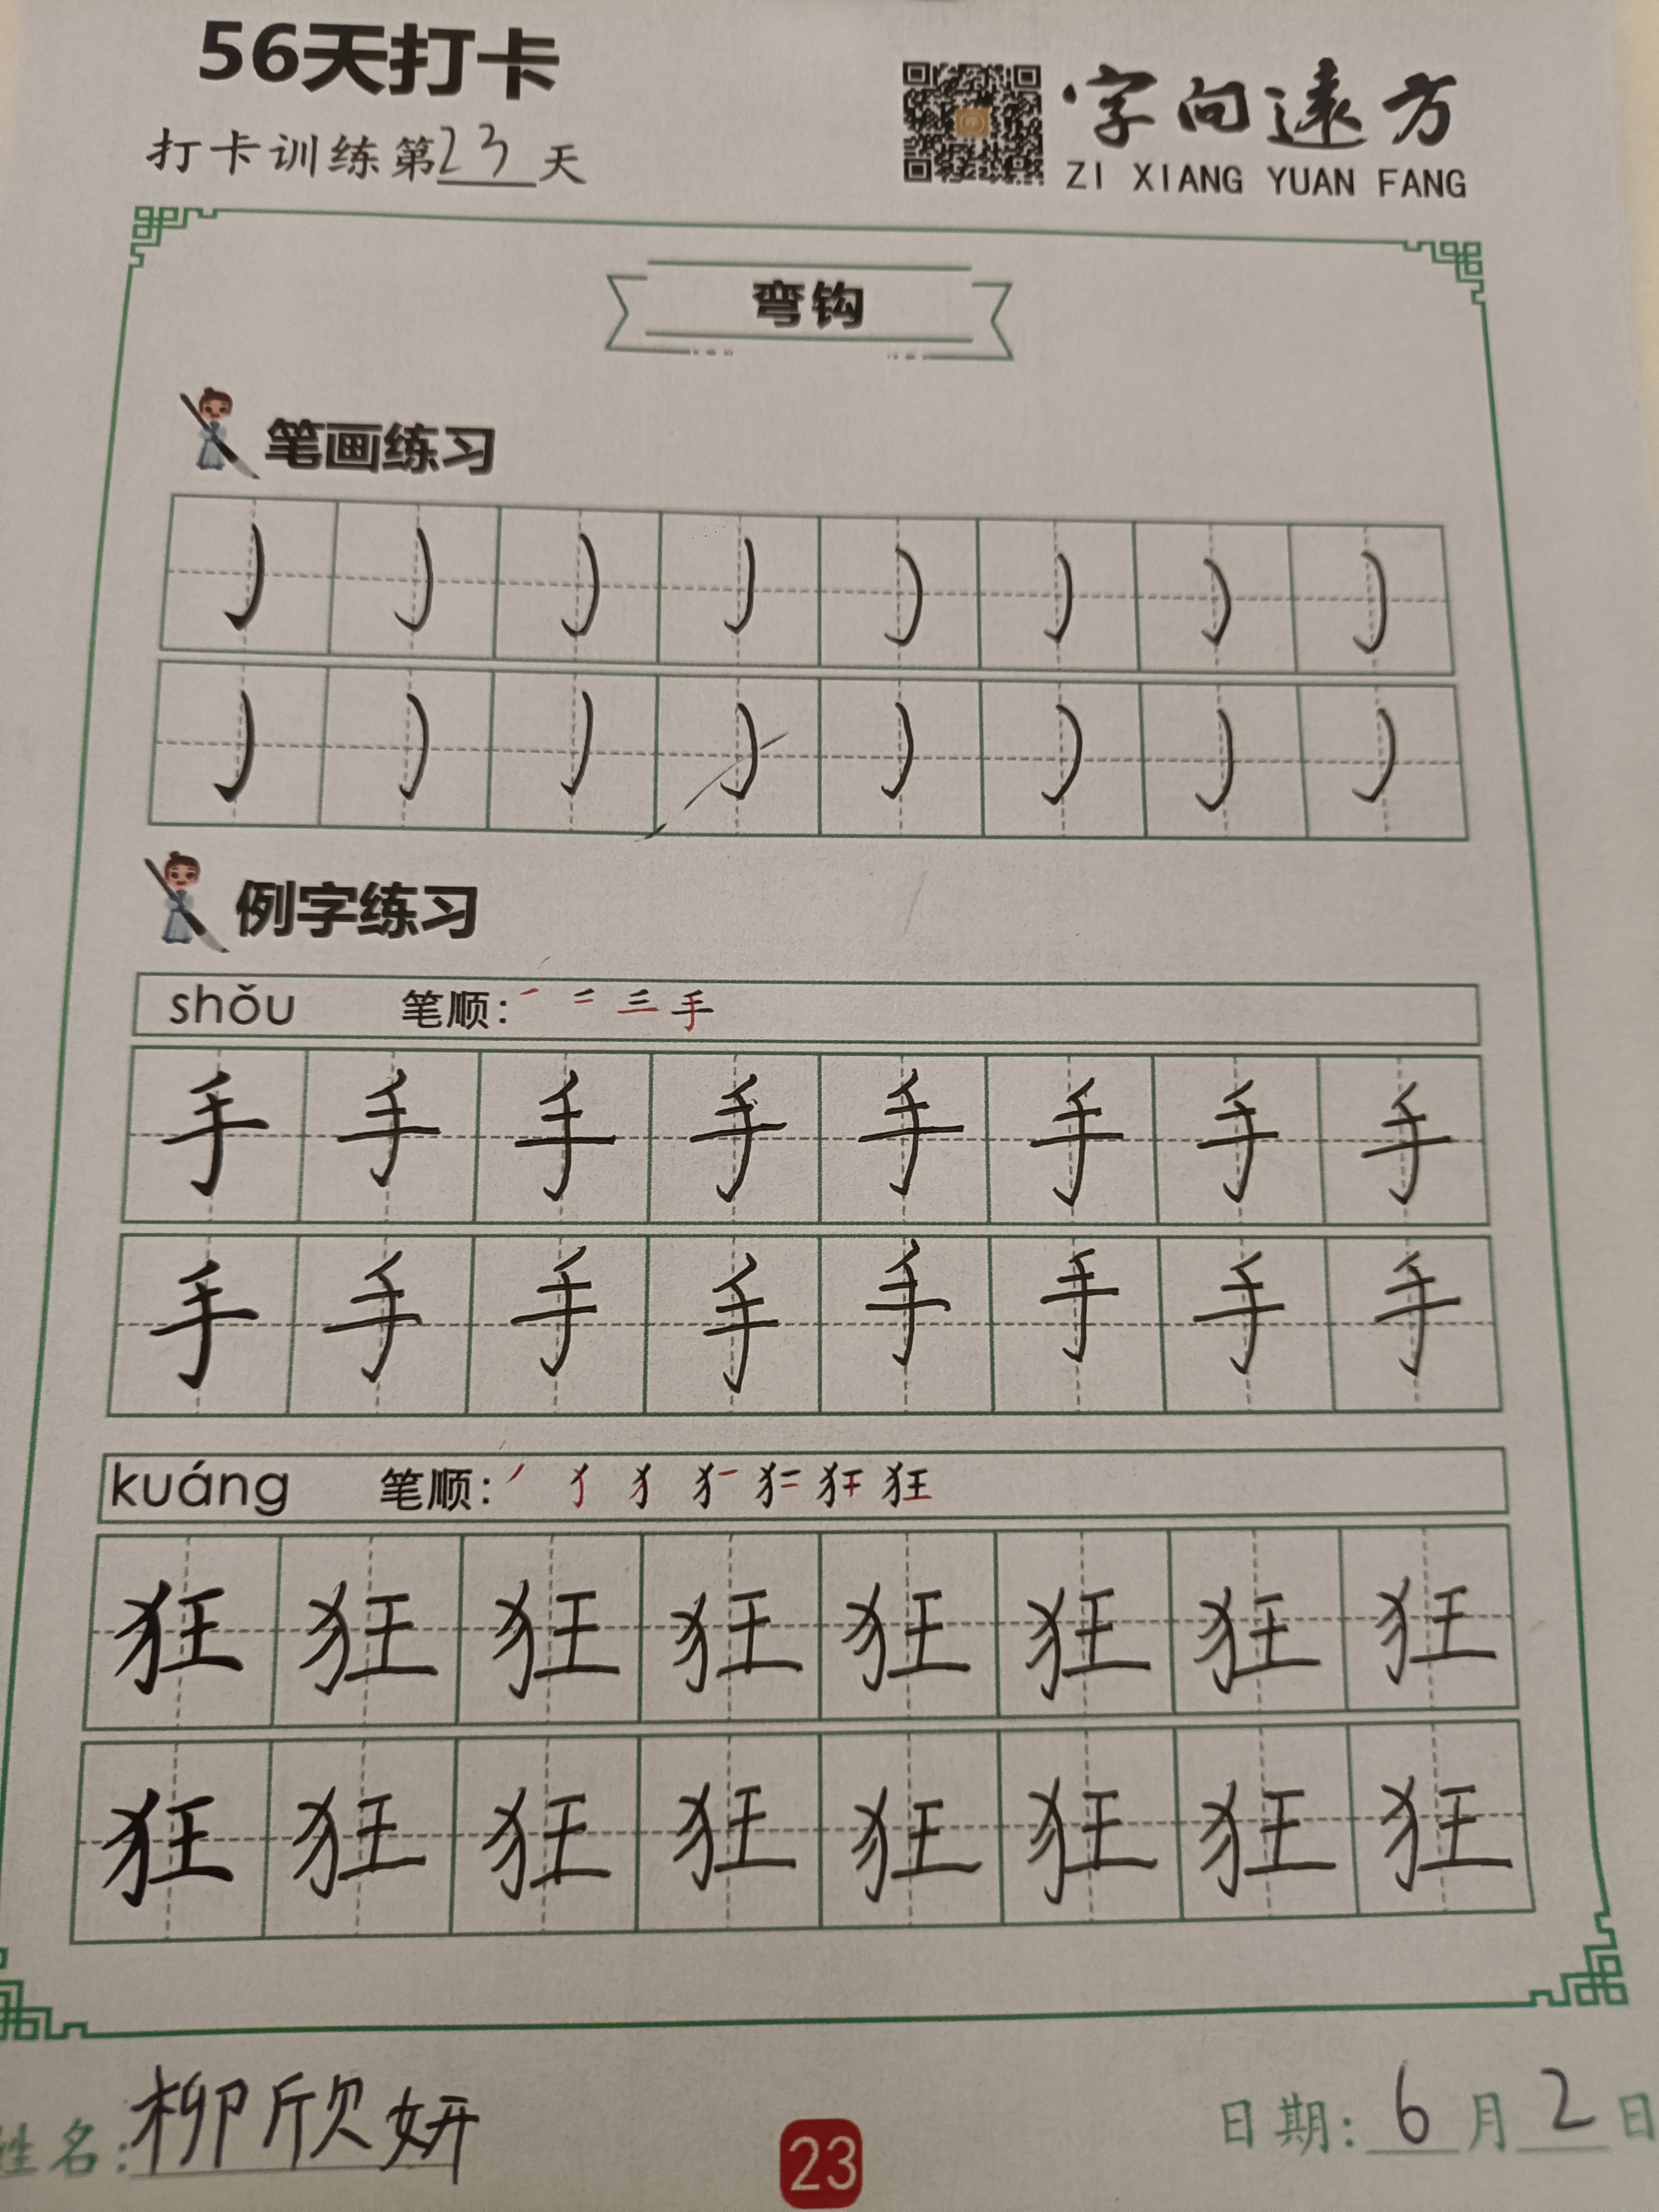 56天打卡
打卡训练第23天
字向远方
ZI XIANG YUAN FANG
弯钩
笔画练习
㇁ ㇁ ㇁ ㇁ ㇁ ㇁ ㇁ ㇁
㇁ ㇁ ㇁ ㇁ ㇁ ㇁ ㇁ ㇁
例字练习
shǒu 笔顺: 一 二 三 手
手 手 手 手 手 手 手 手
手 手 手 手 手 手 手 手
kuáng 笔顺: 狂
狂 狂 狂 狂 狂 狂 狂 狂
狂 狂 狂 狂 狂 狂 狂 狂
姓名:柳欣妍
23
日期:6月2日